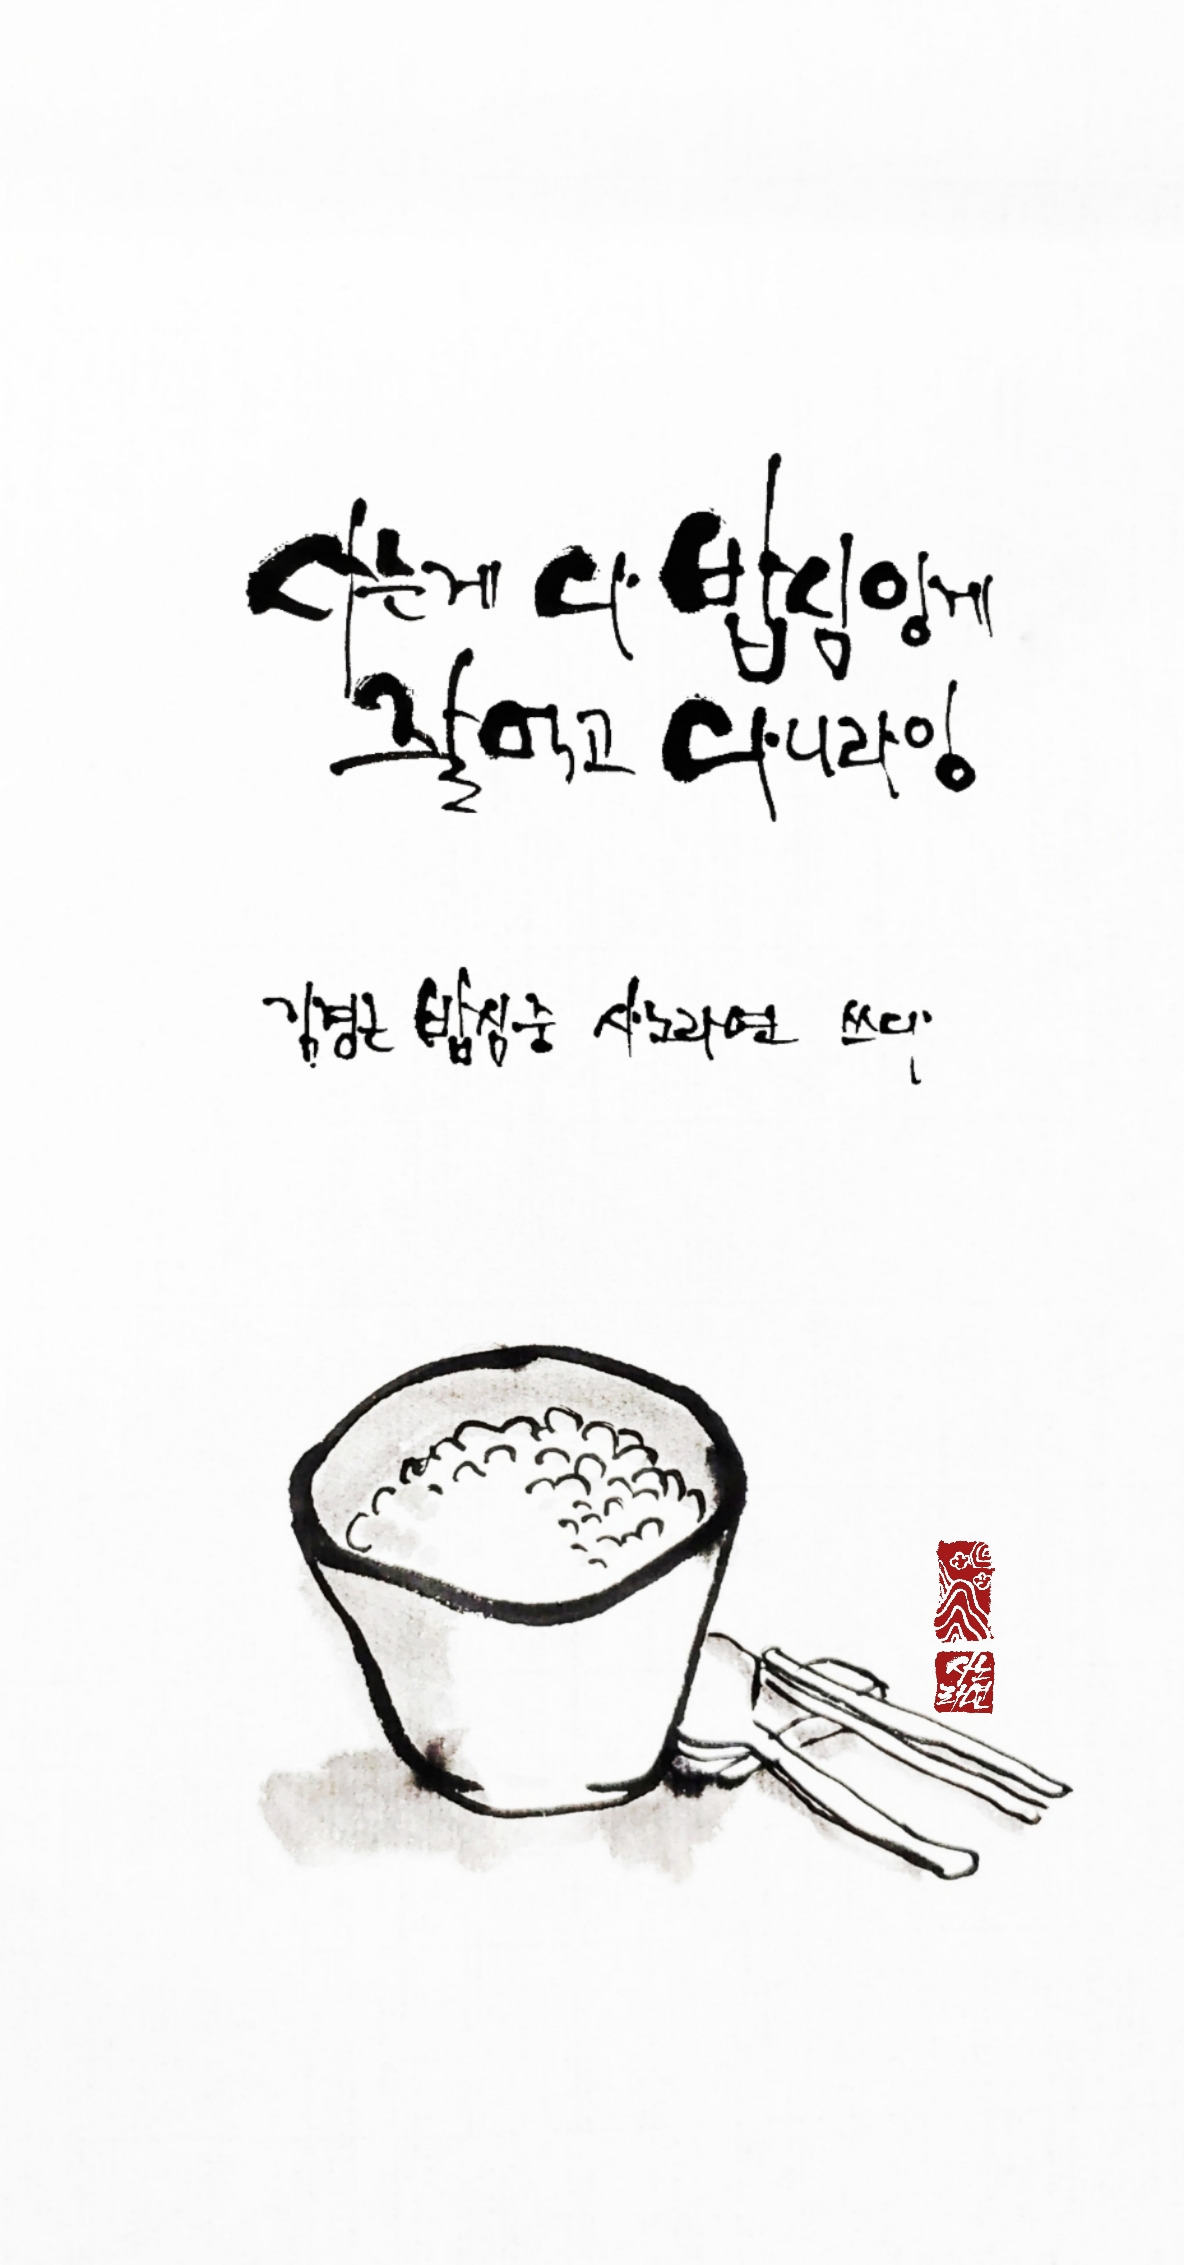 사는게 다 밥심잉게
잘 먹고 다니라잉
김경근 밥심 중 사노라면 쓰다